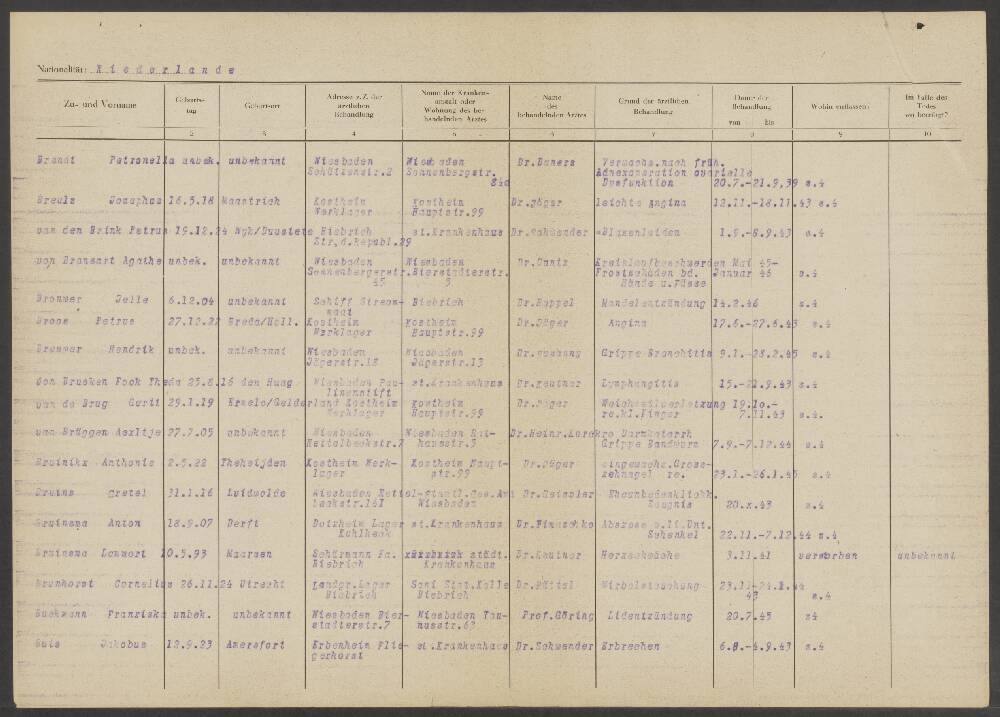 Nationalität: Niederlande
Zu- und Vorname Geburts-tag Geburtsort Adresse z.Z. der ärztlichen Behandlung Name der Krankenanstalt oder Wohnung des behandelnden Arztes Name des behandelnden Arztes Grund der ärztlichen Behandlung Dauer der Behandlung von bis Wohin entlassen? Im Falle des Todes wo beerdigt?
2 3 4 6 7 8 9 10
Brandt Petronella unbek. unbekannt Wiesbaden Wiesbaden Dr.Daners Verwachs.nach früh.
Schützenstr.2 Sonnenbergstr. Adnexoperation ovarielle
84a Dysfunktion 20.7.-21.9.39 s.4
Breuls Josephus 16.5.18 Maastrich Kostheim Kostheim Dr.Jäger leichte Angina 12.11.-18.11.43 s.4
Werklager Hauptstr.99
van den Brink Petrus 19.12.24 Biebrich st.Krankenhaus Dr.Schwender Blasenleiden 1.9.-8.9.43 s.4
Str.d.Republ.29
von Bronsart Agathe unbek. unbekannt Wiesbaden Wiesbaden Dr.Cuntz Kreislaufbeschwerden Mai 45-
Sonnenbergerstr. Bierstadterstr. Frostschäden bd. Januar 46 s.4
45 3 Hände u.Füsse
Brouwer Jelle 6.12.04 unbekannt Schiff Biebrich Dr.Happel Mandelentzündung 14.2.46 s.4
Broos Petrus 27.12.22 Breda/Holl. Kostheim Kostheim Dr.Jäger Angina 17.6.-27.6.43 s.4
Werklager Hauptstr.99
Brouwer Hendrik unbek. unbekannt Wiesbaden Wiesbaden Grippe Bronchitis 9.1.-28.2.45 s.4
Jägerstr.18 Jägerstr.13
den Haag Wiesbaden Pau- st.Krankenhaus Dr.Kautner Lymphangitis 15.-21.9.43 s.4
linenstift
van de Brug Gerit 29.1.19 Ermelo/Gelderland Kostheim Kostheim Dr.Jäger Weichteilverletzung 19.10.-
Werklager Hauptstr.99 re.kl.Finger 7.11.43 s.4.
van Brüggen Aeltje 27.7.05 unbekannt Wiesbaden Wiesbaden Rat- Darmkatarrh
Nettelbeckstr.7 hausstr.3 Grippe Bandwurm 7.9.-7.12.44 s.4
Bruinikx Anthonie 2.5.22 Theheijden Kostheim Werk- Kostheim Haupt- Dr.Jäger eingewachs.Grosse-
lager str.99 zehnagel re. 23.1.-26.1.43 s.4
Bruins Gretel 31.1.16 Luidwolde Wiesbaden Nettel- staatl.Ges.Amt Dr.Geissler
beckstr.16I Wiesbaden Zeugnis 20.x.43 s.4
Bruinsma Anton 18.9.07 Delft Dotzheim Lager st.Krankenhaus Abszess
Kohlheck Schenkel 22.11.-7.12.44 s.4
Bruinsma Lammert 10.5.93 Maarsen Schürmann Fa. städt. Dr.Kautner Herzschwäche 3.11.41 verstorben unbekannt
Biebrich Krankenhaus
Brunhorst Cornelius 26.11.24 Utrecht Landgr.Lager Sani Stat.Kalle Biebrich Biebrich 23.11.-24.1.44 s.4
Buekmann Franziska unbek. unbekannt Wiesbaden Bier- Wiesbaden Tau- Prof.Göring Lidentzündung 20.7.45 s4
stadterstr.7 nusstr.63
Buis Jakobus 12.9.23 Amersfort Erbenheim Flie- st.Krankenhaus Dr.Schwender Erbrechen 6.8.-4.9.43 s.4
gerhorst